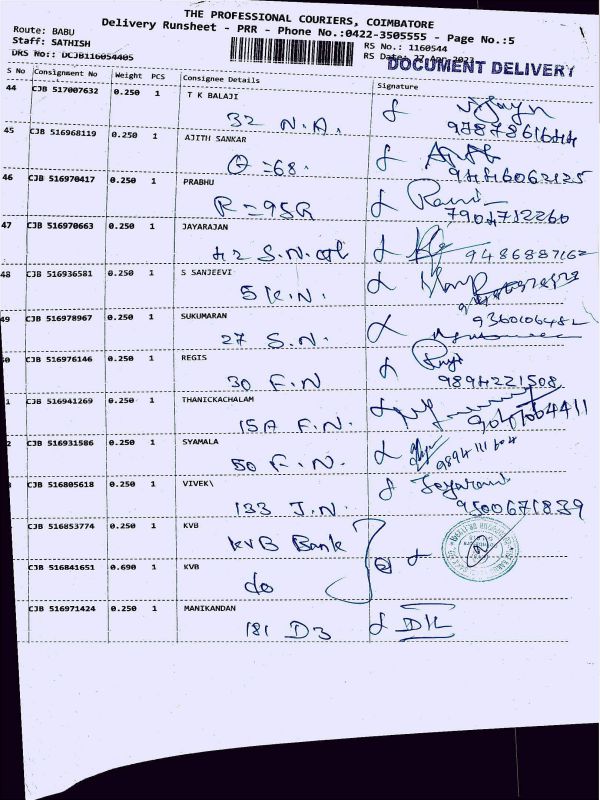 THE PROFESSIONAL COURIERS, COIMBATORE
Delivery Runsheet - PRR - Phone No.:0422-3505555 - Page No.:5
Route: BABU
Staff: SATHISH
RS No.: 1160544
DRS No.: DCJB116054405
RS Date:
DOCUMENT DELIVERY
S No Consignment No Weight PCS Consignee Details Signature
44 CJB 517007632 0.250 1 T K BALAJI
32 N.A. 9787861644
45 CJB 516968119 0.250 1 AJITH SANKAR
Q =68. 9446062125
46 CJB 516970417 0.250 1 PRABHU
R =95R 7904712260
47 CJB 516970663 0.250 1 JAYARAJAN
42 S.N. 9486887162
48 CJB 516936581 0.250 1 S SANJEEVI
5 K.N.
49 CJB 516978967 0.250 1 SUKUMARAN
27 S.N.
0 CJB 516976146 0.250 1 REGIS
30 F.N 9894221508
1 CJB 516941269 0.250 1 THANICKACHALAM
15A F.N.
2 CJB 516931586 0.250 1 SYAMALA
50 F.N.
CJB 516805618 0.250 1 VIVEK\
133 J.N. Jeyarani 9500671839
CJB 516853774 0.250 1 KVB
KVB Bank
CJB 516841651 0.690 1 KVB
do
CJB 516971424 0.250 1 MANIKANDAN
181 D3 D/L